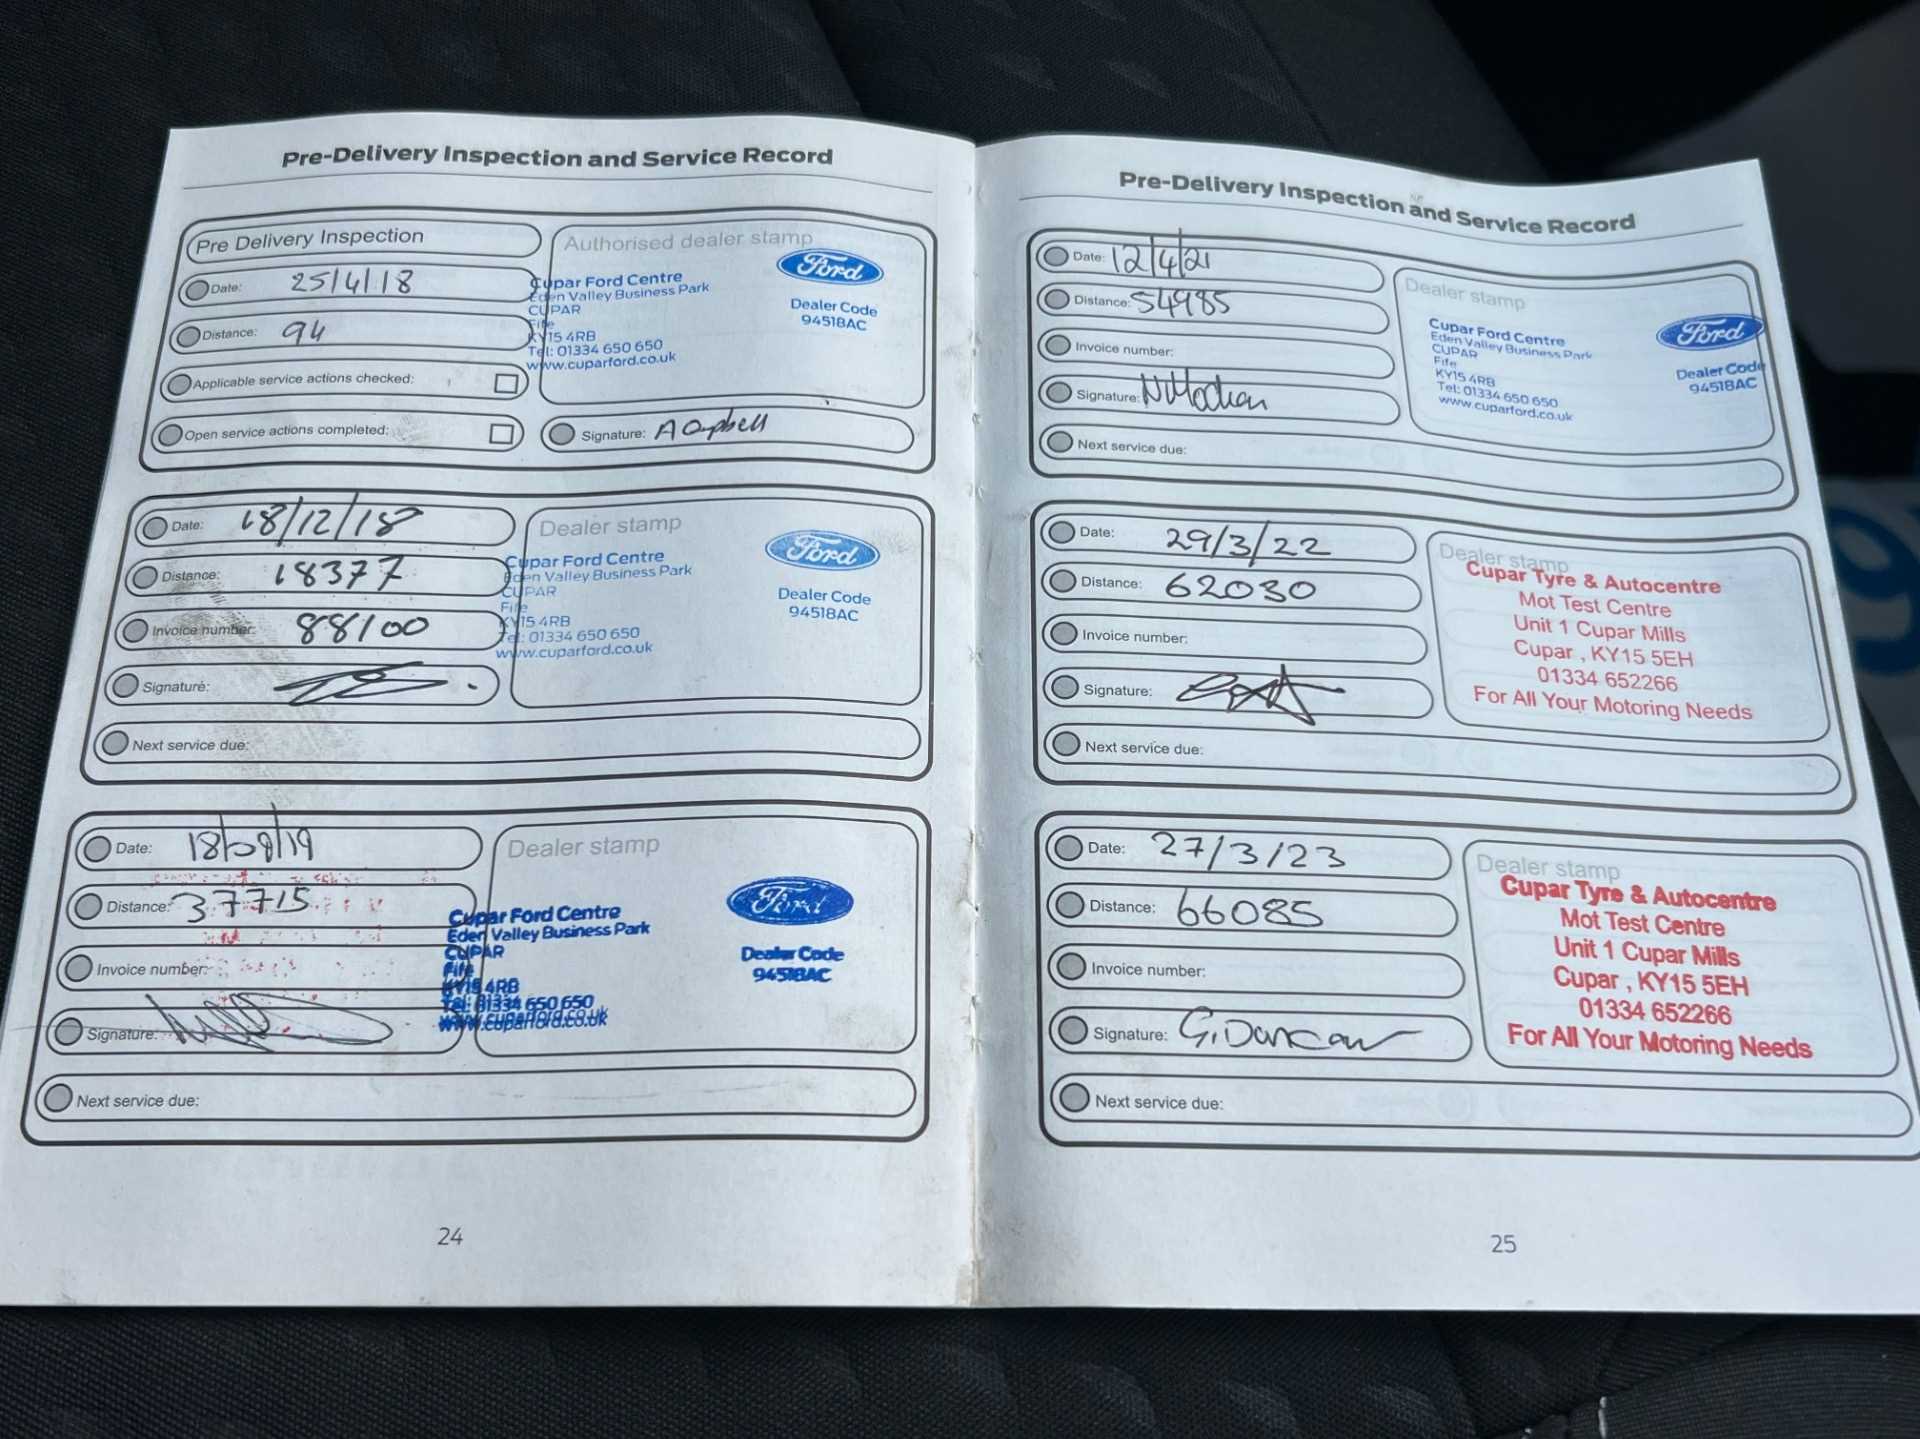 Pre-Delivery Inspection and Service Record
Pre Delivery Inspection
Date: 25/4/18
Distance: 94
Applicable service actions checked:
Open service actions completed:
Authorised dealer stamp
Cupar Ford Centre
Eden Valley Business Park
CUPAR
Fife
KY15 4RB
Tel: 01334 650 650
www.cuparford.co.uk
Ford
Dealer Code
94518AC
Signature: A Campbell
Date: 18/12/18
Distance: 18377
Invoice number: 88100
Signature:
Dealer stamp
Cupar Ford Centre
Eden Valley Business Park
CUPAR
Fife
KY15 4RB
Tel: 01334 650 650
www.cuparford.co.uk
Ford
Dealer Code
94518AC
Next service due:
Date: 18/09/19
Distance: 37715
Invoice number:
Signature:
Dealer stamp
Cupar Ford Centre
Eden Valley Business Park
CUPAR
Fife
KY15 4RB
Tel: 01334 650 650
www.cuparford.co.uk
Ford
Dealer Code
94518AC
Next service due:
24
Pre-Delivery Inspection and Service Record
Date: 12/4/21
Distance: 54985
Invoice number:
Signature:
Dealer stamp
Cupar Ford Centre
Eden Valley Business Park
CUPAR
Fife
KY15 4RB
Tel: 01334 650 650
www.cuparford.co.uk
Ford
Dealer Code
94518AC
Next service due:
Date: 29/3/22
Distance: 62030
Invoice number:
Signature:
Dealer stamp
Cupar Tyre & Autocentre
Mot Test Centre
Unit 1 Cupar Mills
Cupar , KY15 5EH
01334 652266
For All Your Motoring Needs
Next service due:
Date: 27/3/23
Distance: 66085
Invoice number:
Signature: G. Duncan
Dealer stamp
Cupar Tyre & Autocentre
Mot Test Centre
Unit 1 Cupar Mills
Cupar , KY15 5EH
01334 652266
For All Your Motoring Needs
Next service due:
25